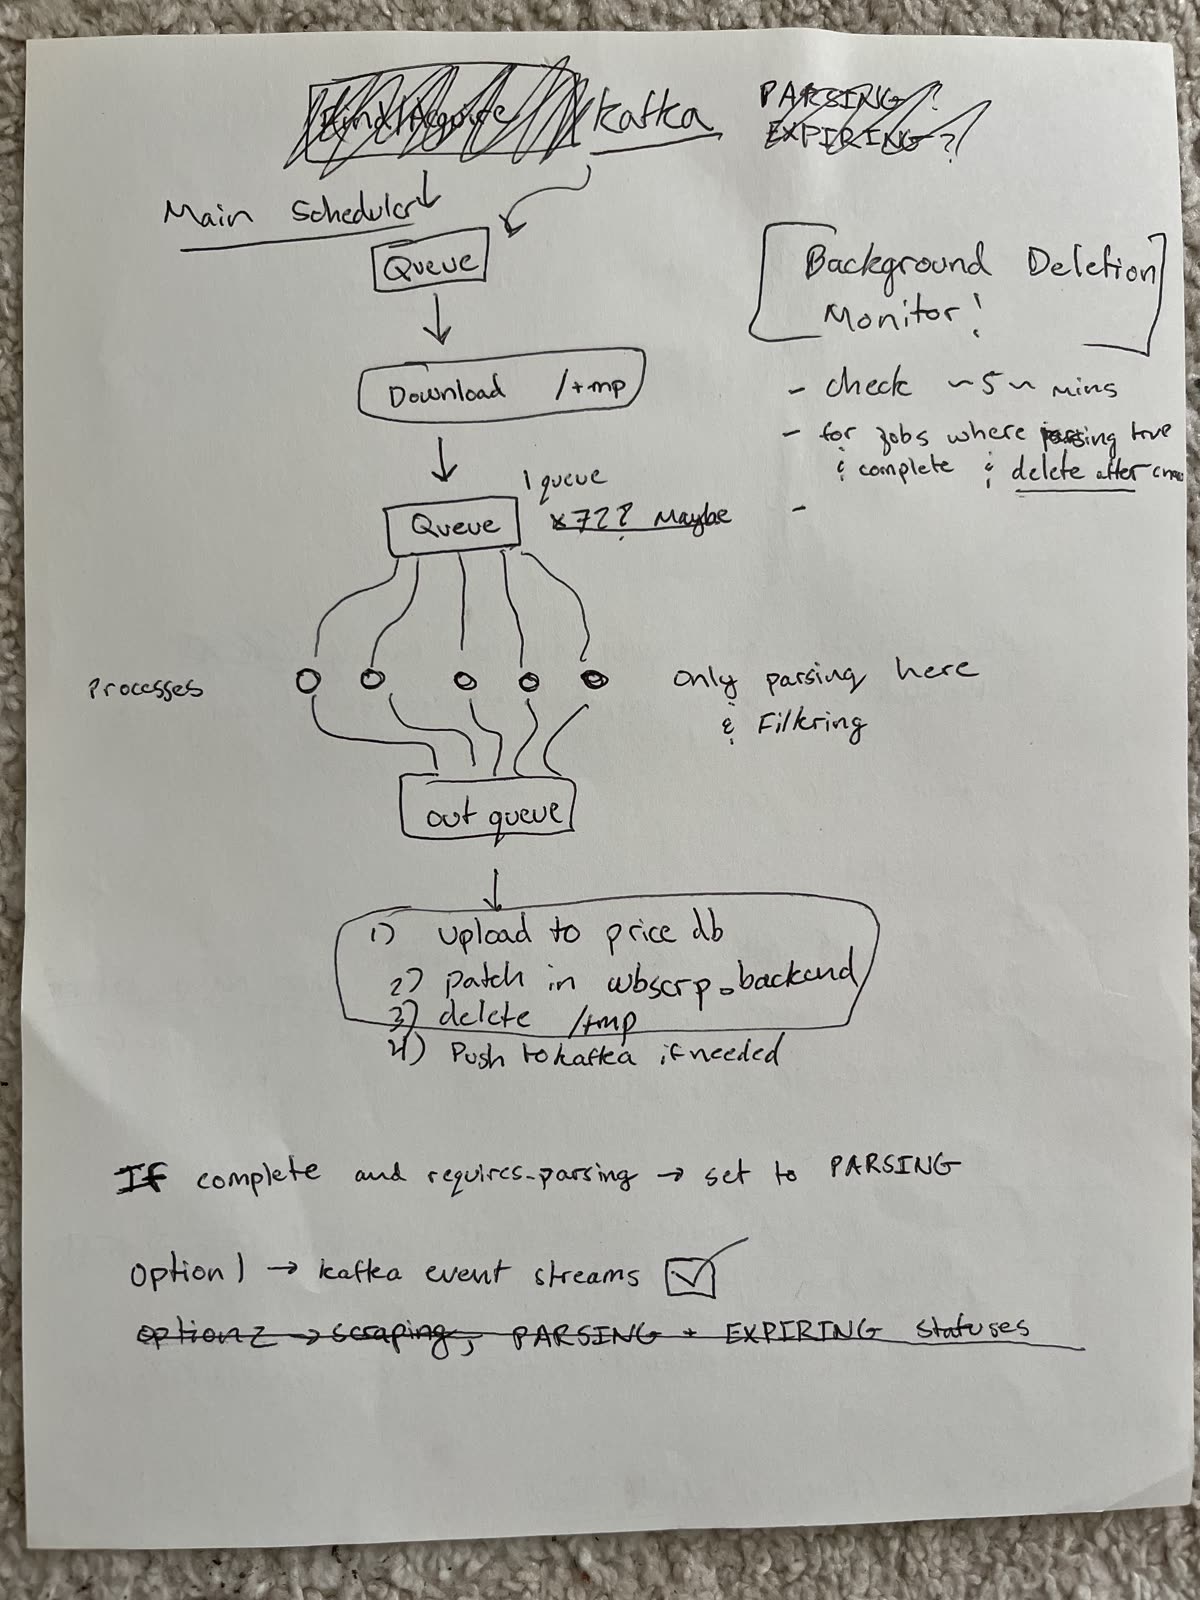 Kafka
PARSING?
EXPIRING?
Main Scheduler
Queue
Background Deletion
Monitor!
Download /tmp
- check ~5~ mins
- for jobs where parsing true
& complete & delete after
-
1 queue
x72? Maybe
Queue
Processes
only parsing here
& Filtering
out queue
1) upload to price db
2) patch in wbscrp_backend
3) delete /tmp
4) Push to kafka if needed
If complete and requires_parsing → set to PARSING
Option 1 → kafka event streams ☑
option 2 → scraping, PARSING + EXPIRING statuses